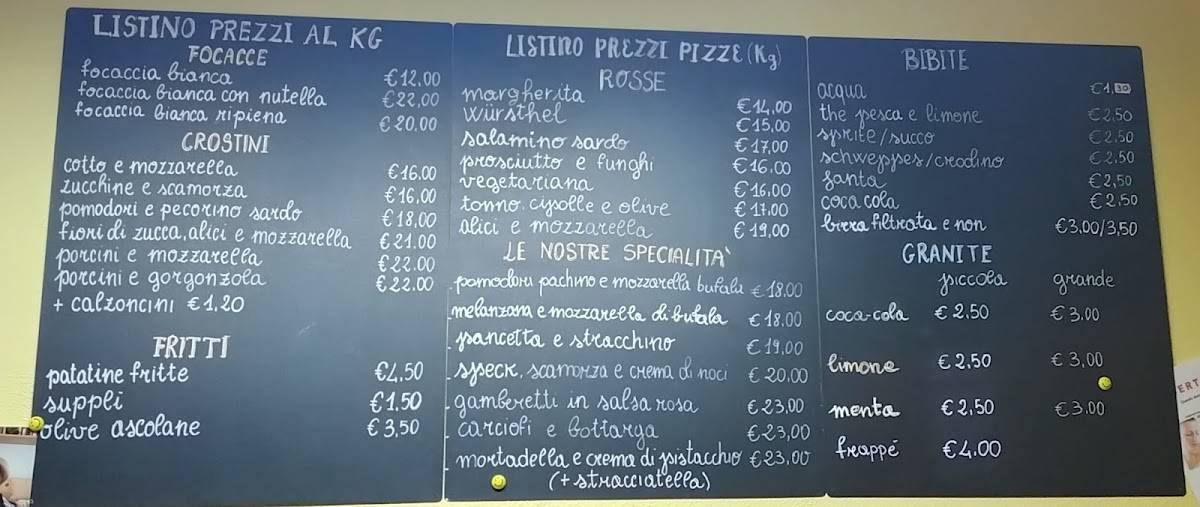 LISTINO PREZZI AL KG
FOCACCE
focaccia bianca €12,00
focaccia bianca con nutella €22,00
focaccia bianca ripiena €20,00
CROSTINI
cotto e mozzarella €16.00
zucchine e scamorza €16,00
pomodori e pecorino sardo €18,00
fiori di zucca, alici e mozzarella €21.00
porcini e mozzarella €22.00
porcini e gorgonzola €22.00
+ calzoncini €1.20
FRITTI
patatine fritte €4,50
suppli €1.50
olive ascolane €3,50
LISTINO PREZZI PIZZE (Kg)
ROSSE
margherita €14,00
würsthel €15,00
salamino sardo €17,00
prosciutto e funghi €16.00
vegetariana €16.00
tonno, cipolle e olive €17.00
alici e mozzarella €19,00
LE NOSTRE SPECIALITA'
pomodori pachino e mozzarella bufala €18.00
melanzana e mozzarella di bufala €18.00
pancetta e stracchino €19,00
speck, scamorza e crema di noci €20,00
gamberetti in salsa rosa €23,00
carciofi e bottarga €23,00
mortadella e crema di pistacchio €23,00
(+ stracciatella)
BIBITE
acqua €1,30
the pesca e limone €2.50
sprite/succo €2.50
schweppes/crodino €2.50
fanta €2,50
coca cola €2.50
birra filtrata e non €3.00/3,50
GRANITE
piccola grande
coca-cola €2.50 €3.00
limone €2,50 €3,00
menta €2,50 €3.00
frappé €4.00